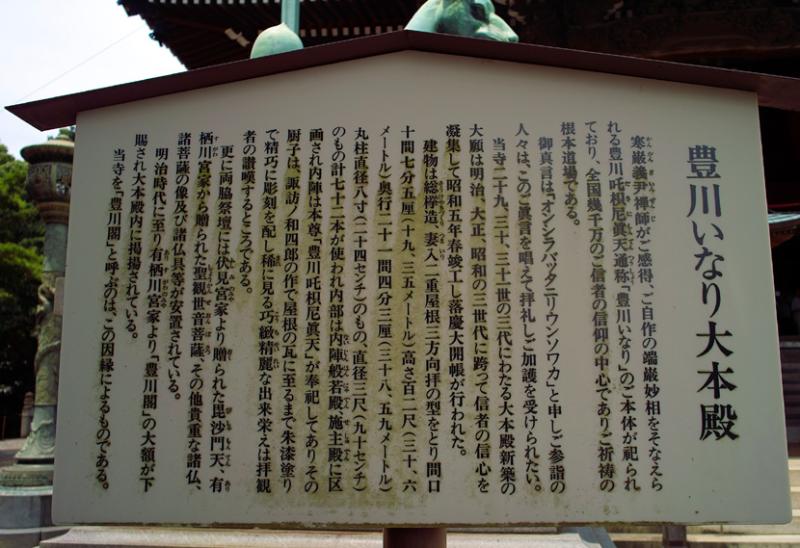 豊川いなり大本殿
寒巌義尹禅師がご感得、ご自作の端厳妙相をそなえら
れる豊川吒枳尼眞天通称「豊川いなり」のご本体が祀られ
ており、全国幾千万のご信者の信仰の中心でありご祈祷の
根本道場である。
御真言は「オンシラバッタニリウンソワカ」と申しご参詣の
人々は、このご眞言を唱えて拝礼しご加護を受けられたい。
当寺二十九、三十、三十一世の三代にわたる大本殿新築の
大願は明治、大正、昭和の三世代に跨って信者の信心を
凝集して昭和五年春竣工し落慶大開帳が行われた。
建物は総欅造、妻入二重屋根三方向拝の型をとり間口
十間七分五厘（十九、三五メートル）高さ百二尺（三十、六
メートル）奥行二十一間四分三厘（三十八、五九メートル）
丸柱直径八寸（二十四センチ）のもの、直径三尺（九十センチ）
のもの計七十二本が使われ内部は内陣般若殿施主殿に区
画され内陣は本尊「豊川吒枳尼眞天」が奉祀してありその
厨子は、諏訪ノ和四郎の作で屋根の瓦に至るまで朱漆塗り
で精巧に彫刻を配し稀に見る巧緻精麗な出来栄えは拝観
者の讃嘆するところである。
更に両脇祭壇には伏見宮家より贈られた毘沙門天、有
栖川宮家から贈られた聖観世音菩薩、その他貴重な諸仏、
諸菩薩の像及び諸仏具等が安置されている。
明治時代に至り有栖川宮家より「豊川閣」の大額が下
賜され大本殿内に掲揚されている。
当寺を「豊川閣」と呼ぶのは、この因縁によるものである。